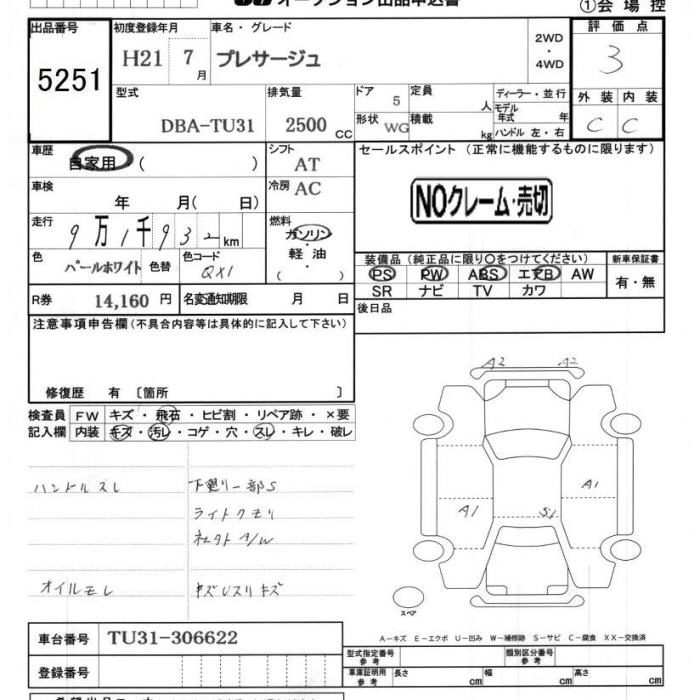 オークション出品申込書
①会 場 控
出品番号
5251
初度登録年月
H21 7 月
車名・グレード
プレサージュ
2WD
・
4WD
評 価 点
3
外 装 内 装
C C
型式
DBA-TU31
排気量
2500 CC
ドア
5
定員
人
ディーラー・並行
モデル年式 年
形状
WG
積載
kg
ハンドル 左・右
車歴
自家用 ( )
シフト
AT
セールスポイント (正常に機能するものに限ります)
NOクレーム・売切
車検
年 月( 日)
冷房
AC
走行
9万1千932km
燃料
ガソリン
・
軽 油
( )
色
パールホワイト
色替
色コード
QX1
装備品(純正品に限り〇をつけてください)
PS PW ABS エアB AW
SR ナビ TV カワ
新車保証書
有・無
R券
14,160 円
名変通知期限 月 日
後日品
注意事項申告欄(不具合内容等は具体的に記入して下さい)
修復歴 有 〔箇所 〕
検査員記入欄
FW キズ・飛石・ヒビ割・リペア跡・×要
内装 キズ・汚レ・コゲ・穴・スレ・キレ・破レ
ハンドルスレ
下廻り一部S
ライトクモリ
オイルモレ
A2 A2
A1
A1
S1
スペア
A-キズ E-エクボ U-凹み W-補修跡 S-サビ C-腐食 XX-交換済
車台番号
TU31-306622
登録番号
型式指定番号
参考
類別区分番号
参考
車庫証明用
参考
長さ cm
幅 cm
高さ cm